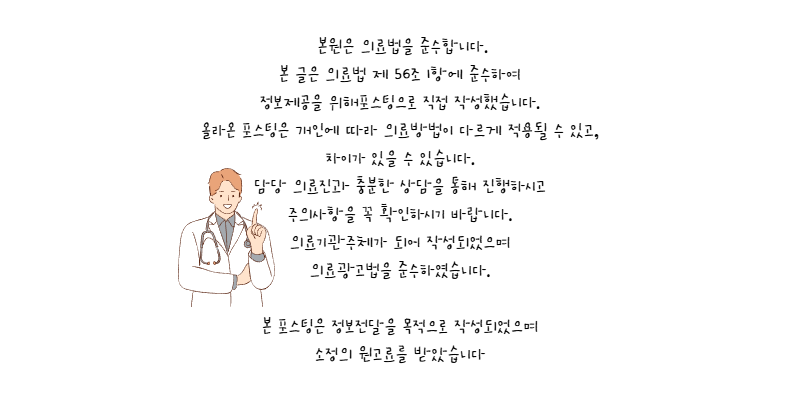 본원은 의료법을 준수합니다.
본 글은 의료법 제 56조 1항에 준수하여
정보제공을 위해포스팅으로 직접 작성했습니다.
올라온 포스팅은 개인에 따라 의료방법이 다르게 적용될 수 있고,
차이가 있을 수 있습니다.
담당 의료진과 충분한 상담을 통해 진행하시고
주의사항을 꼭 확인하시기 바랍니다.
의료기관주체가 되어 작성되었으며
의료광고법을 준수하였습니다.
본 포스팅은 정보전달을 목적으로 작성되었으며
소정의 원고료를 받았습니다